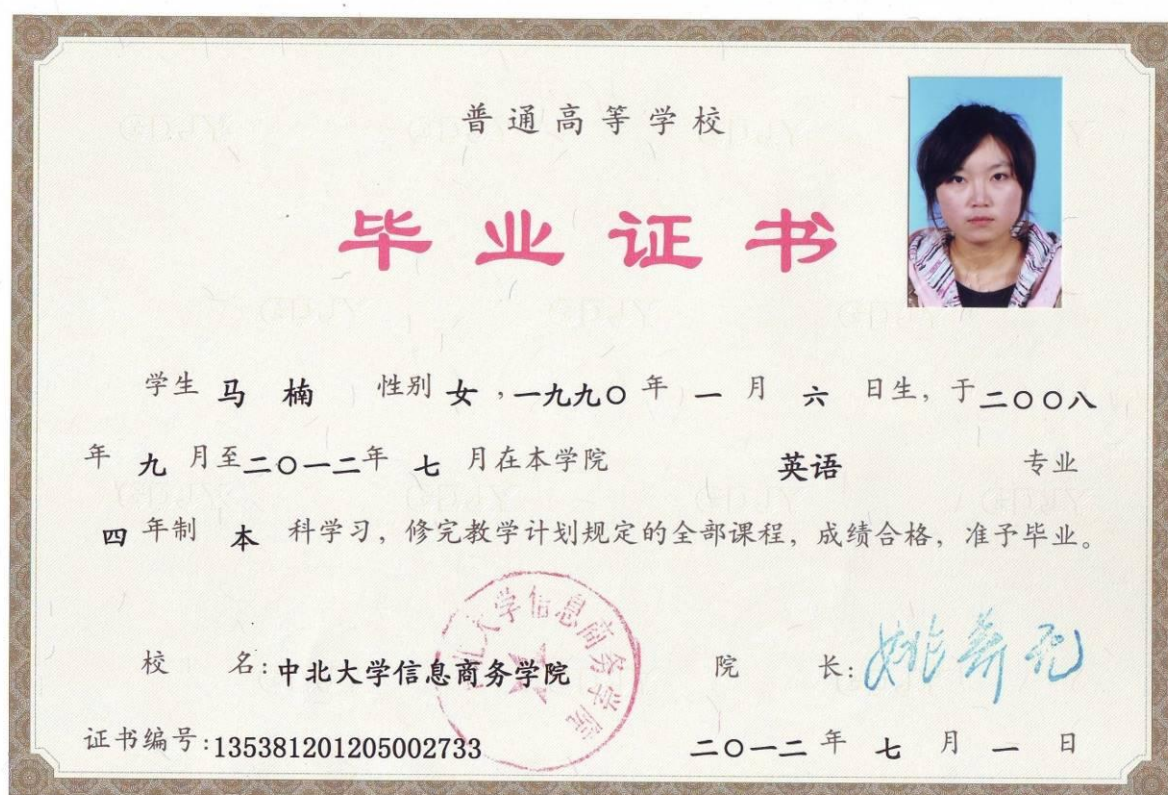 普通高等学校
毕业证书
学生 马 楠 性别 女 , 一九九〇 年 一 月 六 日生, 于 二〇〇八
年 九 月至 二〇一二 年 七 月在本学院 英语 专业
四 年制 本 科学习, 修完教学计划规定的全部课程, 成绩合格, 准予毕业。
中北大学信息商务学院
校 名: 中北大学信息商务学院 院 长:
证书编号: 135381201205002733 二〇一二 年 七 月 一 日